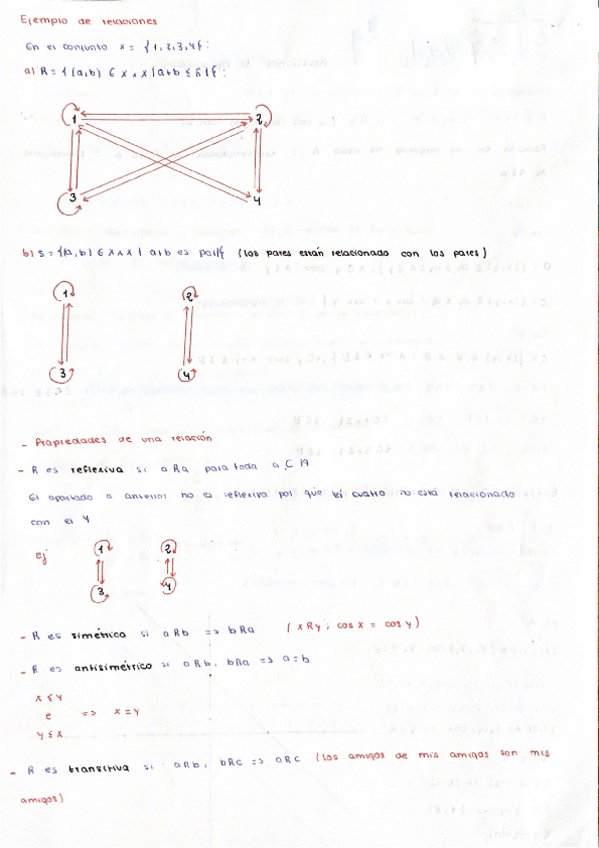 Ejemplo de relaciones
En el conjunto x = {1,2,3,4}:
a) R = {(a,b) ∈ x × x | a+b ≤ 6}:
1 2
3 4
b) S = {(a,b) ∈ x × x | a+b es par} (los pares están relacionado con los pares)
1 2
3 4
- Propiedades de una relación
- R es reflexiva si aRa para toda a ∈ A
El apartado a anterior no es reflexiva por que el cuatro no está relacionado
con el 4
ej 1 2
3 4
- R es simétrico si aRb => bRa (xRy; cos x = cos y)
- R es antisimétrico si aRb, bRa => a=b
x ≤ y
e => x = y
y ≤ x
- R es transitiva si aRb, bRc => aRc (los amigos de mis amigos son mis
amigos)